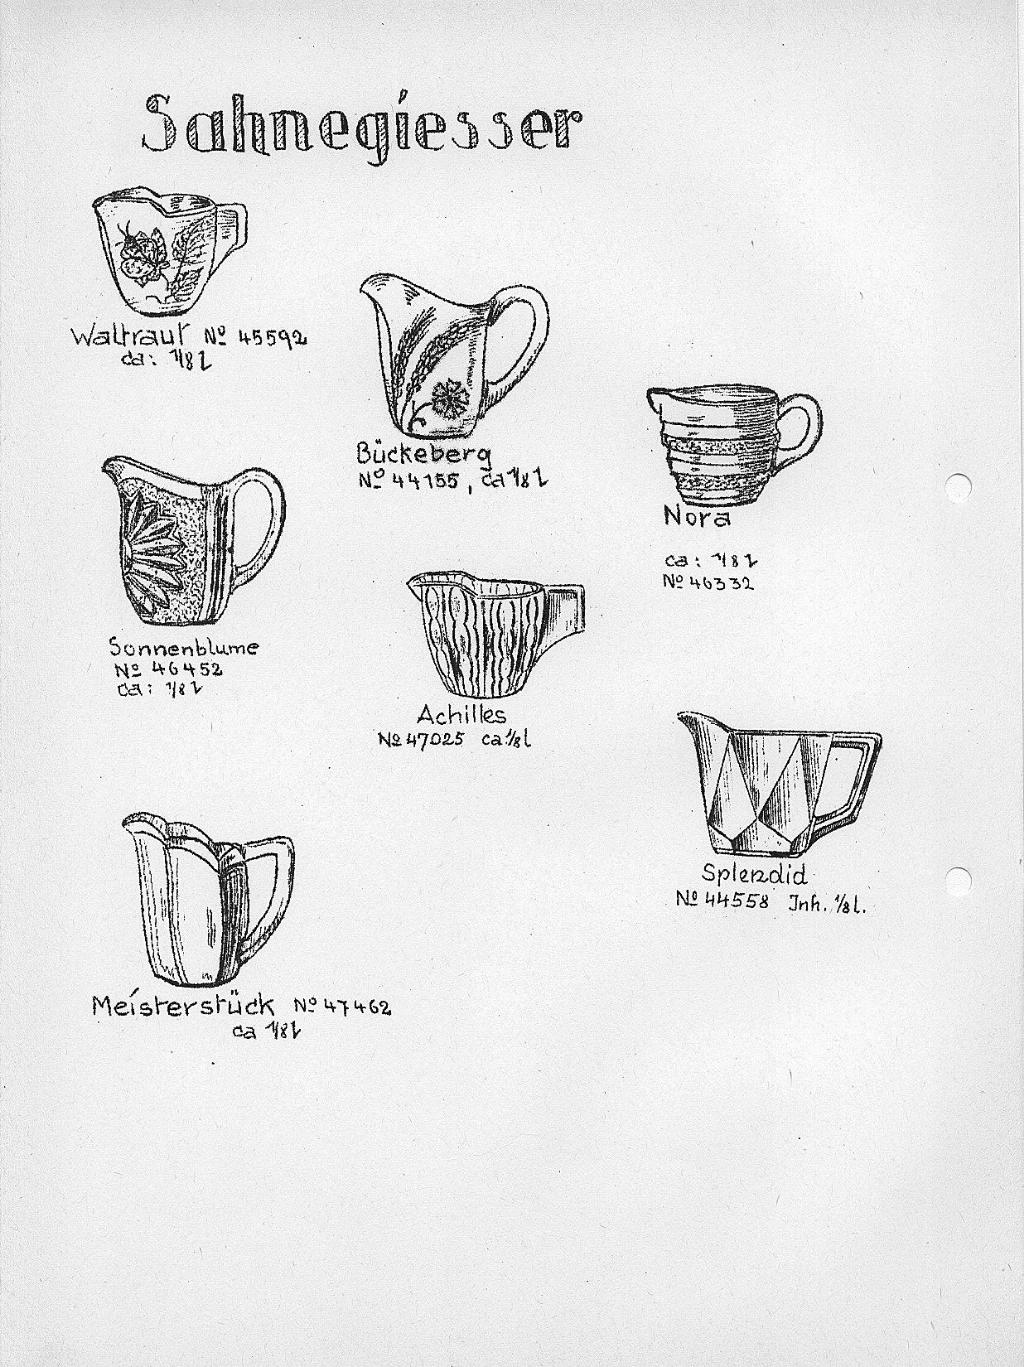 Sahnegiesser
Waltraut Nº 45592
ca: 1/8 l
Bückeberg
Nº 44155, ca 1/8 l
Nora
ca: 1/8 l
Nº 46332
Sonnenblume
Nº 46452
ca: 1/8 l
Achilles
Nº 47025 ca 1/8 l
Splendid
Nº 44558 Inh. 1/8 l.
Meisterstück Nº 47462
ca 1/8 l